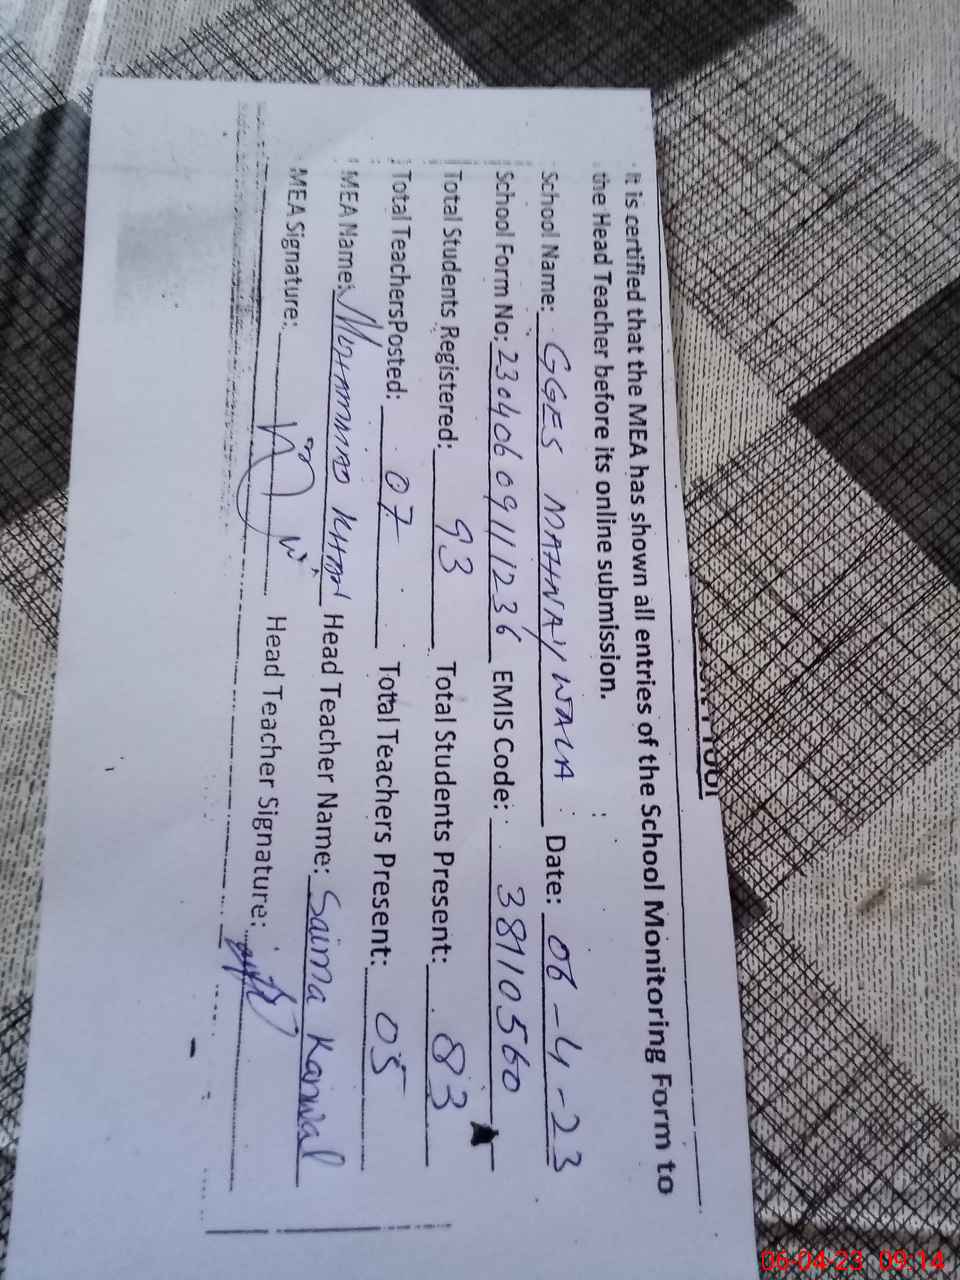 It is certified that the MEA has shown all entries of the School Monitoring Form to
the Head Teacher before its online submission.
School Name: GGES MAHNAY WALA Date: 06-4-23
School Form No: 230406091111236 EMIS Code: 38110560
Total Students Registered: 93 Total Students Present: 83
Total TeachersPosted: 07 Total Teachers Present: 05
MEA Name: MOHAMMAD KHAN Head Teacher Name: Saima Kanwal
MEA Signature: Head Teacher Signature:
06-04-23 09:14